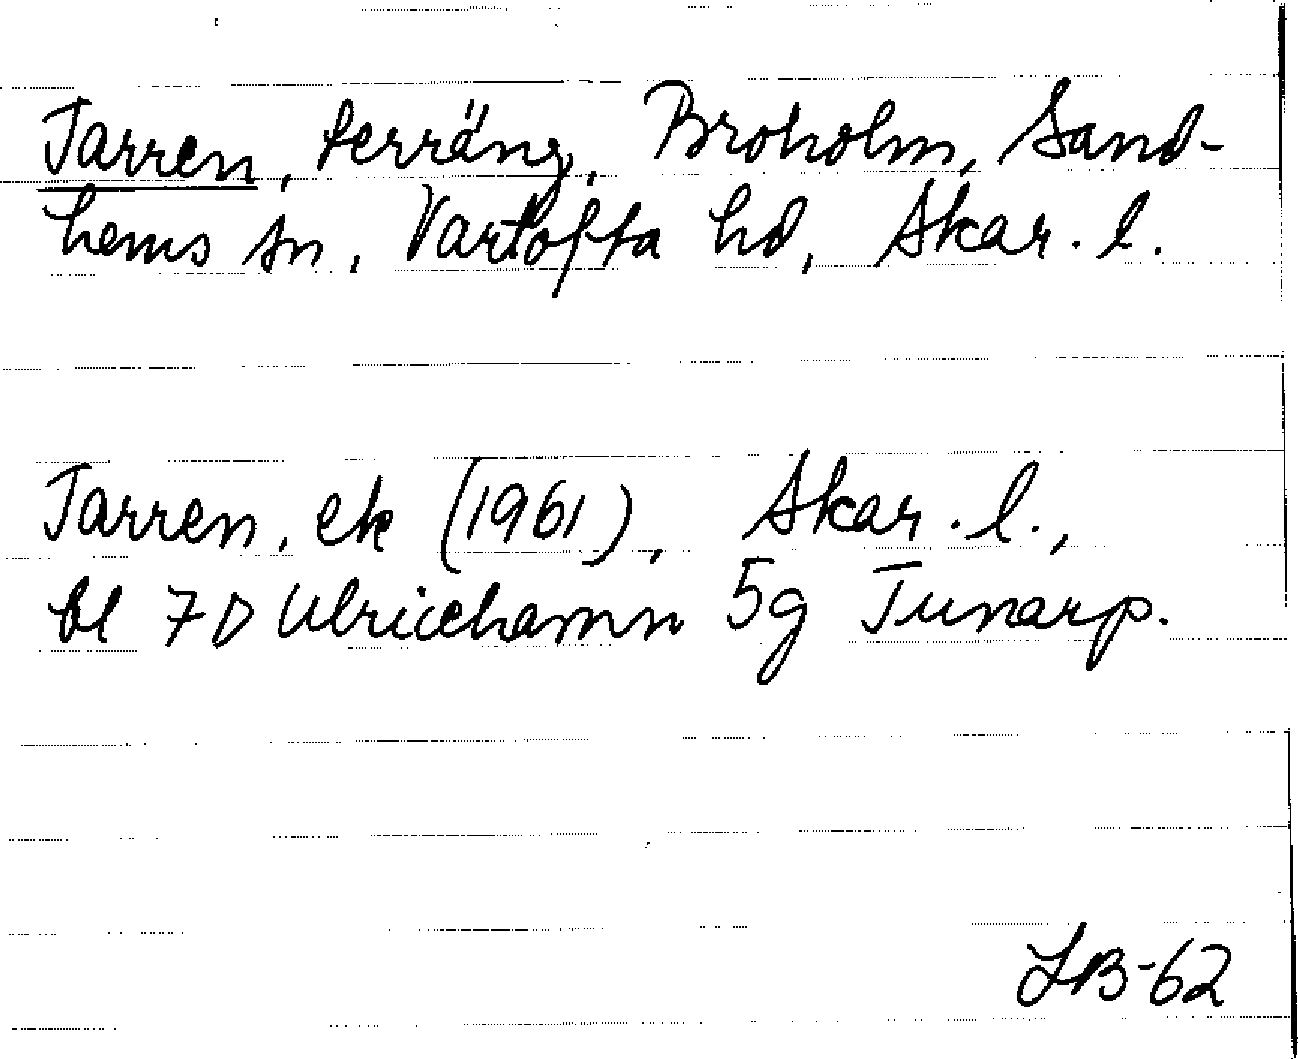 Tarren, terräng, Broholm, Sand-
hems sn, Vartofta hd, Skar. l.
Tarren, ek (1961), Skar. l.,
bl 7D Ulricehamn 5g Tunarp.
LB-62